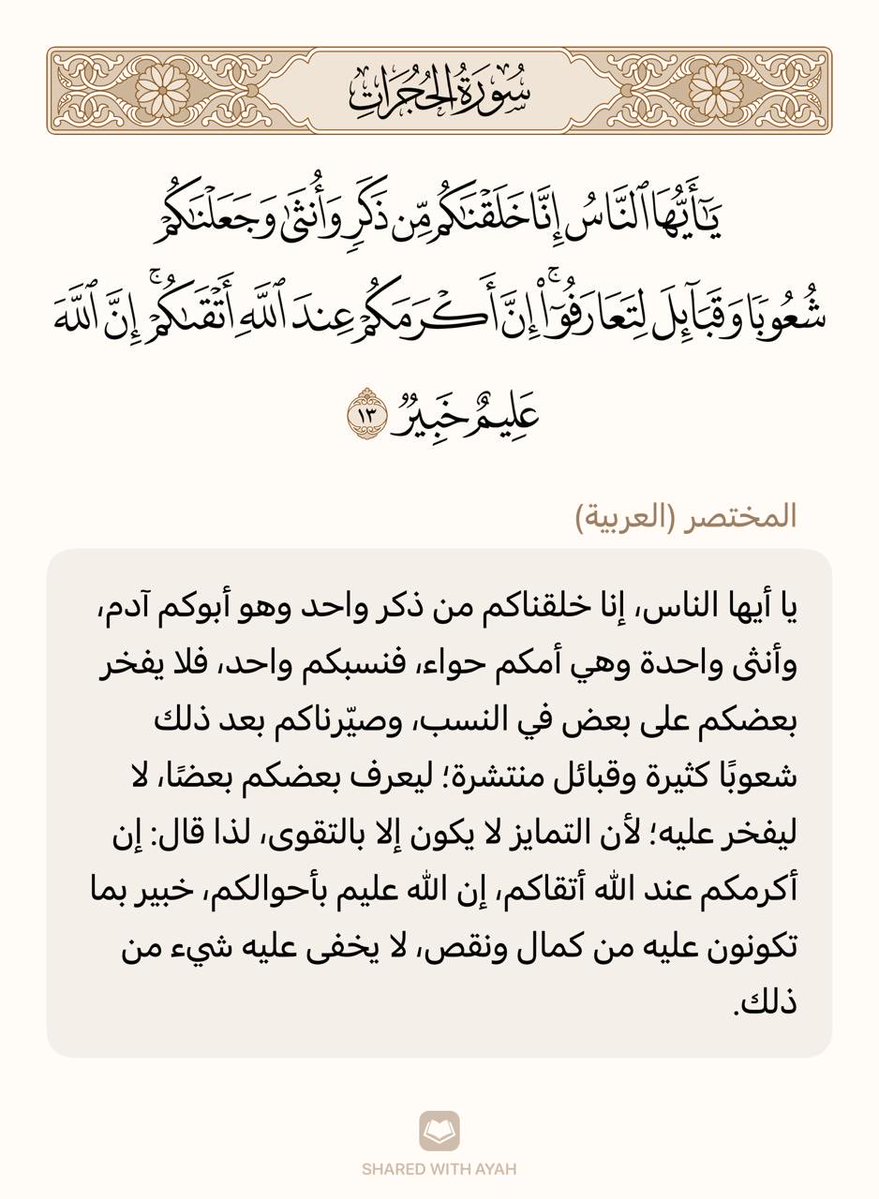 سُورَةُ الحُجُرَاتِ
يَـٰٓأَيُّهَا ٱلنَّاسُ إِنَّا خَلَقۡنَـٰكُم مِّن ذَكَرٖ وَأُنثَىٰ وَجَعَلۡنَـٰكُمۡ
شُعُوبٗا وَقَبَآئِلَ لِتَعَارَفُوٓاْۚ إِنَّ أَكۡرَمَكُمۡ عِندَ ٱللَّهِ أَتۡقَىٰكُمۡۚ إِنَّ ٱللَّهَ
عَلِيمٌ خَبِيرٞ ١٣
المختصر (العربية)
يا أيها الناس، إنا خلقناكم من ذكر واحد وهو أبوكم آدم،
وأنثى واحدة وهي أمكم حواء، فنسبكم واحد، فلا يفخر
بعضكم على بعض في النسب، وصيّرناكم بعد ذلك
شعوبًا كثيرة وقبائل منتشرة؛ ليعرف بعضكم بعضًا، لا
ليفخر عليه؛ لأن التمايز لا يكون إلا بالتقوى، لذا قال: إن
أكرمكم عند الله أتقاكم، إن الله عليم بأحوالكم، خبير بما
تكونون عليه من كمال ونقص، لا يخفى عليه شيء من
ذلك.
SHARED WITH AYAH